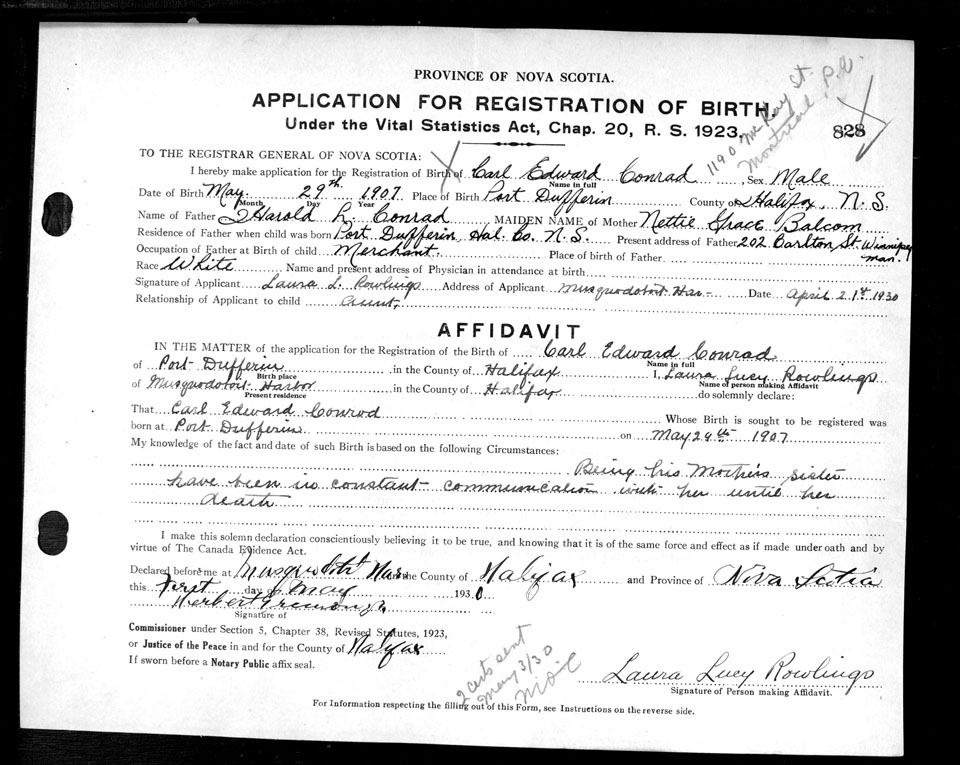 PROVINCE OF NOVA SCOTIA.
APPLICATION FOR REGISTRATION OF BIRTH.
Under the Vital Statistics Act, Chap. 20, R. S. 1923.
828
1190 McKay St.
Montreal, P.Q.
TO THE REGISTRAR GENERAL OF NOVA SCOTIA:
I hereby make application for the Registration of Birth of Carl Edward Conrad, Sex Male
Name in full
Date of Birth May 29th 1907 Place of Birth Port Dufferin County of Halifax, N. S.
Month Day Year
Name of Father Harold L. Conrad MAIDEN NAME of Mother Nettie Grace Balcom
Residence of Father when child was born Port Dufferin, Hal. Co. N. S. Present address of Father 202 Carlton St. Winnipeg Man.
Occupation of Father at Birth of child Merchant. Place of birth of Father
Race White Name and present address of Physician in attendance at birth
Signature of Applicant Laura L. Rowlings Address of Applicant Musquodoboit Har Date April 21st 1930
Relationship of Applicant to child Aunt,
AFFIDAVIT
IN THE MATTER of the application for the Registration of the Birth of Carl Edward Conrad
Name in full
of Port Dufferin in the County of Halifax I, Laura Lucy Rowlings
Birth place Name of person making Affidavit
of Musquodoboit Harbor in the County of Halifax do solemnly declare:
Present residence
That Carl Edward Conrod Whose Birth is sought to be registered was
born at Port Dufferin on May 29th 1907
My knowledge of the fact and date of such Birth is based on the following Circumstances:
Being his Mother's sister
have been in constant communication with her until her
death
I make this solemn declaration conscientiously believing it to be true, and knowing that it is of the same force and effect as if made under oath and by
virtue of The Canada Evidence Act.
Declared before me at Musquodoboit Har in the County of Halifax and Province of Nova Scotia
this First day of May 1930
Signature of
Commissioner under Section 5, Chapter 38, Revised Statutes, 1923,
or Justice of the Peace in and for the County of Halifax
If sworn before a Notary Public affix seal.
2 certs sent
May 3/30
Laura Lucy Rowlings
Signature of Person making Affidavit.
For Information respecting the filling out of this Form, see Instructions on the reverse side.